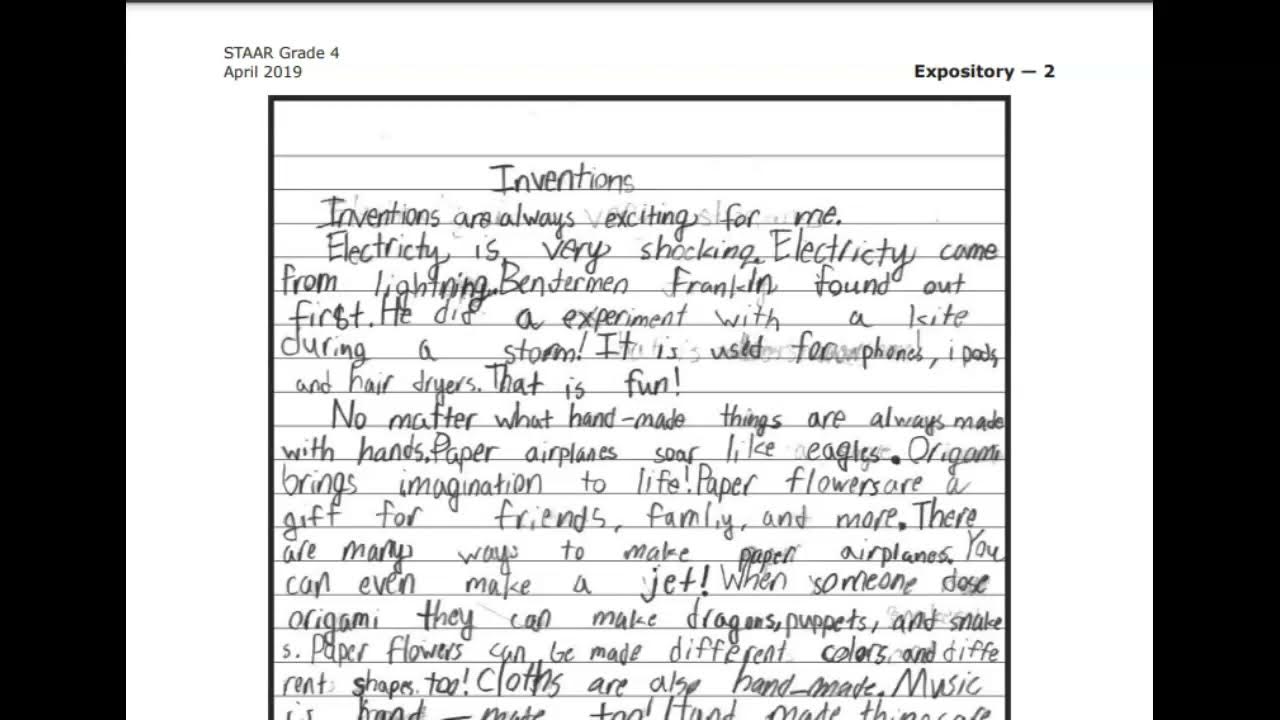 STAAR Grade 4
April 2019
Expository — 2
Inventions
Inventions are always exciting for me.
Electricty is very shocking. Electricty came
from lightning. Bentermen Franklin found out
first. He did a experiment with a kite
during a storm! It is used for phones, ipods,
and hair dryers. That is fun!
No matter what hand-made things are always made
with hands. Paper airplanes soar like eagles. Origami
brings imagination to life! Paper flowers are a
gift for friends, famliy, and more. There
are many ways to make paper airplanes. You
can even make a jet! When someone dose
origami they can make dragons, puppets, and snake
s. Paper flowers can be made different colors and diffe
rent shapes too! Cloths are also hand-made. Music
is hand-made too! Hand made things are